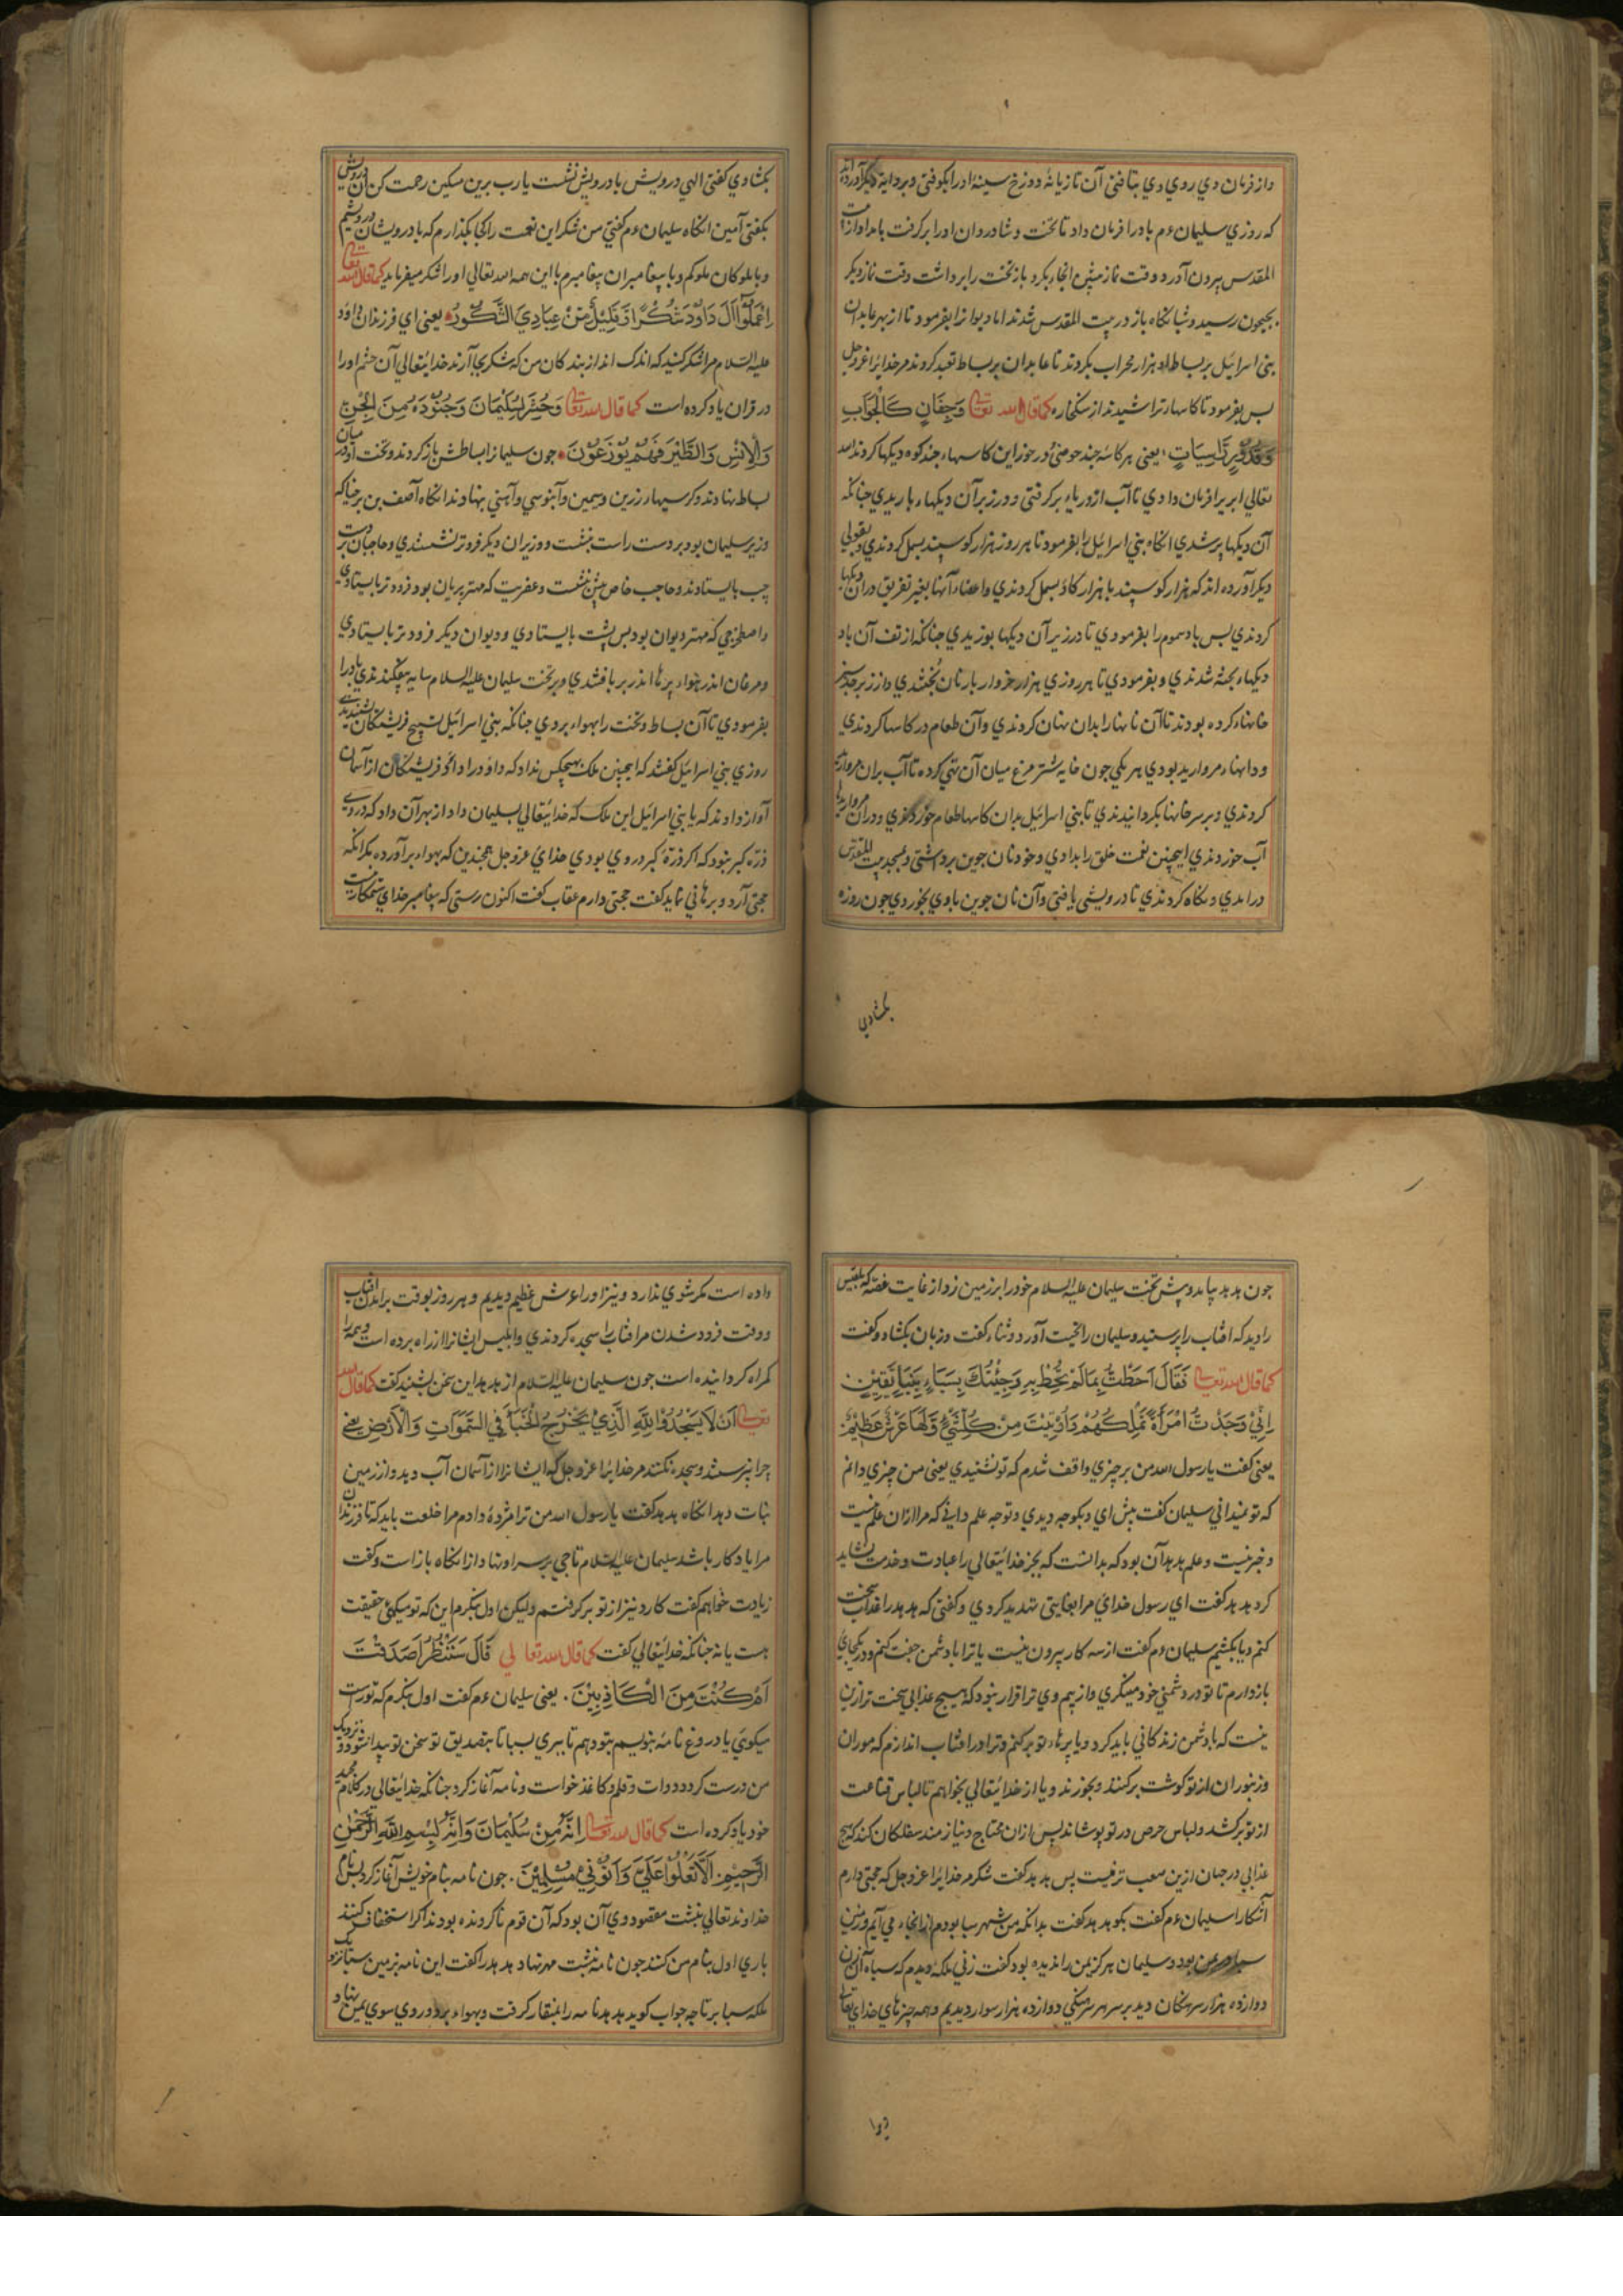 واز فرمان وي روي وي بتافتی آن تازیانهٔ دوزخ سینهٔ اورا بکوفتی و بر وایة دیگر آورده اند
که روزی سلیمان عم باد را فرمان داد تا تخت و شادروان اورا بر گرفت بامداد از بیت
المقدس بیرون آورد و وقت نماز پیشین انجاء بکرد باز تخت را برداشت وقت نماز دیکر
بجیحون رسید و شبانکاه باز در بیت المقدس شدند اما دیوانرا بفرمود تا از بهر عابدان
بنی اسرائیل بر بساط او هزار محراب بکردند تا عابدان بر بساط تعبد کردند مر خدایرا عزوجل
بس بفرمود تا کاسها تراشیدند از سنکخاره کما قال الله تعالی وَجِفَانٍ كَالْجَوَابِ
وَقُدُورٍ رَّاسِيَاتٍ یعنی هر کاسهٔ چند حوضی و در خور این کاسهاء چند کوه دیکها کردند الله
تعالی ابر یرا فرمان دادی تا آب از دریاء بر کرفتی و در زبر آن دیکهاء باریدی چنانکه
آن دیکها پر شدی انکاه بنی اسرائیل را بفرمود تا هر روز هزار کوسپند بسمل کردندی و بقولی
دیکر آورده اند که هزار کوسپند با هزار کاو بسمل کردندی و اعضاء آنها بغیر تفریق در ان دیکها
کردندی بس باد سموم را بفرمودی تا در زیر آن دیکها بوزیدی چنانکه از تف آن باد
دیکهاء پخته شدندی و بفرمودی تا هر روزی هزار خروار بار نان پختندی و از زبرجد سبز
خانهاء کرده بودند تا آن نانها را بدان پنهان کردندی و آن طعام در کاسها کردندی
و دانهاء مروارید بودی هر یکی چون خایه شتر مرغ میان آن تهی کرده تا آب بران مروارید
کردندی و بر سر خانها بکردانیدندی تا بنی اسرائیل بدان کاسها طعام خوردندی و در ان مرواریدها
آب خوردندی اینچنین نعمت خلق را بدادی و خود نان جوین برداشتی و بمسجد بیت المقدس
در امدی و نکاه کردندی تا درویشی یافتی و آن نان جوین با وی بخوردی چون روزه
بکشادی
بکشادی کفتی الهی درویش با درویش نشست یا رب برین مسکین رحمت کن آن درویش
بکفتی آمین انکاه سلیمان عم کفتی من شکر این نعمت را کجا بکذارم که با درویشان درویشم
و با ملوکان ملوکم و با پیغامبران پیغامبرم با این همه الله تعالی اورا شکر میفرماید کما قال الله تعالی
اِعْمَلُوْا آلَ دَاوُدَ شُكْرًا وَقَلِيْلٌ مِّنْ عِبَادِيَ الشَّكُوْرُ یعنی ای فرزندان داود
علیه السلام مرا شکر کنید که اندک اند از بندکان من که شکر بجا آرند خدایتعالی آن حشم اورا
در قران یاد کرده است کما قال الله تعالی وَحُشِرَ لِسُلَيْمَانَ وَجُنُوْدَهُ مِنَ الْجِنِّ
وَالْاِنْسِ وَالطَّيْرِ فَهُمْ يُوْزَعُوْنَ چون سلیمانرا بساطش باز کردند و تخت او در میان
بساط بنهادند و کرسیهاء زرین و سیمین و آبنوسی و آهنی بنهادند انکاه آصف بن برخیا که
وزیر سلیمان بود بر دست راست بنشست و وزیران دیکر فروتر نشستندی و حاجبان بر دست
چپ بایستادند و حاجب خاص پیش بنشست و عفریت که مهتر پریان بود فرودتر بایستادی
واصطرخی که مهتر دیوان بود بس پشت بایستادی و دیوان دیکر فرودتر بایستادی
و مرغان اندر هواء پرها اندر بر بافتندی و بر تخت سلیمان علیه السلام سایه بیفکندندی باد را
بفرمودی تا آن بساط و تخت را بهواء بردی چنانکه بنی اسرائیل تسبیح فریشتکان بشنیدندی
روزی بنی اسرائیل کفتند که اینچنین ملک بهیچکس نداد که داود را داد و فریشتکان از آسمان
آواز دادند که یا بنی اسرائیل این ملک که خدایتعالی بسلیمان داد از بهر آن داد که در وی
ذرّه کبر نبود که اکر ذرّهٔ کبر در وی بودی خدای عزوجل همچندین که بهواء بر آورده مکر انکه
حجتی آرد و برهانی نماید کفت حجتی دارم عقاب کفت اکنون رستی که پیغامبر خدای ستمکار نیست
چون هدهد بیامد و پیش تخت سلیمان علیه السلام خودرا بر زمین زد از غایت غصّه که بلقیس
را دید که افتاب را پرستید و سلیمان را تحیت آورد و ثناء کفت و زبان بکشاد و کفت
کما قال الله تعالی فَقَالَ اَحَطْتُّ بِمَا لَمْ تُحِطْ بِهِ وَجِئْتُكَ بِسَبَاءٍ بِنَبَاءٍ يَقِيْنٍ
اِنِّيْ وَجَدْتُّ امْرَأَةً تَمْلِكُهُمْ وَاُوْتِيَتْ مِنْ كُلِّ شَيْءٍ وَّلَهَا عَرْشٌ عَظِيْمٌ
یعنی کفت یا رسول الله من بر چیزی واقف شدم که تو نشنیدی یعنی من چیزی دانم
که تو نمیدانی سلیمان کفت بیش ای و بکو چه دیدی و تو چه علم دانی که مرا از ان علم نیست
و خبر نیست و علم هدهد آن بود که بدانست که بجز خدایتعالی را عبادت و خدمت نشاید
کرد هدهد کفت ای رسول خدای مرا بغایتی تهدید کردی و کفتی که هدهد را عذاب سخت
کنم و یا بکشم سلیمان عم کفت از سه کار بیرون نیست یا ترا با دشمن جفت کنم و در یکجای
بازدارم تا تو در دشمنی خود مینکری و از بیم وی ترا قرار نبود که هیچ عذابی سخت تر ازین
نیست که با دشمن زندکانی باید کرد و یا پرهاء تو بر کنم و ترا در افتاب اندازم که موران
وزنبوران از تو کوشت بر کنند و بخورند و یا از خدایتعالی بخواهم تا لباس قناعت
از تو بر کشد و لباس حرص در تو پوشاند پس از ان محتاج و نیازمند سفلکان کند که هیچ
عذابی در جهان ازین صعب تر نیست پس هدهد کفت شکر مر خدایرا عزوجل که حجتی دارم
آشکارا سلیمان عم کفت بکو هدهد کفت بدانکه من بشهر سبا بودم از انجاء می آیم و زمین
سبا در یمن بود و سلیمان هرکز یمن را ندیده بود کفت زنی ملکه دیدم که سپاه آن زن
دوازده هزار سرهنکان دید بر سر هر سرهنکی دوازده هزار سوار دیدیم و همه چیزهای خدای تعالی
داده است مکر شوی ندارد و نیز اورا عرش عظیم دیدیم و هر روز بوقت برامدن افتاب
و وقت فرود شدن مر افتاب را سجده کردندی و ابلیس ایشانرا از راه برده است و همه را
کمراه کردانیده است چون سلیمان علیه السلام از هدهد این سخن بشنید کفت کما قال الله
تعالی اَنْ لَا يَسْجُدُوْا لِلّٰهِ الَّذِيْ يُخْرِجُ الْخَبْأَ فِي السَّمٰوَاتِ وَالْاَرْضِ یعنی
چرا نپرستند و سجده نکنند مر خدایرا عزوجل که ایشانرا از آسمان آب دهد و از زمین
نبات دهد انکاه هدهد کفت یا رسول الله من ترا مژدهٔ دادم مرا خلعت باید که تا فرزندان
مرا یادکار باشد سلیمان علیه السلام تاجی بر سر او نهاد از انکاه باز است و کفت
زیادت خواهم کفت کارد نیز از تو بر کرفتم ولیکن اول بنکرم این که تو میکوئی حقیقت
هست یا نه چنانکه خدایتعالی کفت کما قال الله تعالی قَالَ سَنَنْظُرُ اَصَدَقْتَ
اَمْ كُنْتَ مِنَ الْكَاذِبِيْنَ یعنی سلیمان عم کفت اول بنکرم که تو راست
میکوئی یا دروغ نامهٔ بنویسم بتو دهم تا ببری بسبا تا بتصدیق تو سخن تو پیدا شود و نزدیک
من درست کردد دوات و قلم و کاغذ خواست و نامه آغاز کرد چنانکه خدایتعالی در کلام مجید
خود یاد کرده است کما قال الله تعالی اِنَّهُ مِنْ سُلَيْمَانَ وَاِنَّهُ بِسْمِ اللهِ الرَّحْمٰنِ
الرَّحِيْمِ اَلَّا تَعْلُوْا عَلَيَّ وَاْتُوْنِيْ مُسْلِمِيْنَ چون نامه بنام خویش آغاز کرد بس نام
خداوند تعالی نبشت مقصود وی آن بود که آن قوم ناکرونده بودند اکر استخفاف کنند
باری اول بنام من کنند چون نامه نبشت مهر نهاد هدهد را کفت این نامه بزمین سبا نزدیک
ملکه سبا بر تا چه جواب کوید هدهد نامه را بمنقار کرفت و بهواء بر د و روی سوی یمن نهاد